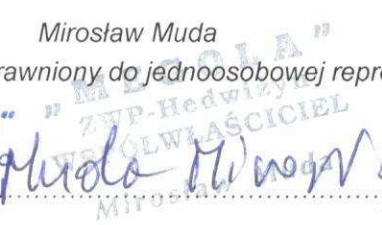 Mirosław Muda
rawniony do jednoosobowej repre
"MEGOLA"
ZWP-Hedwiżyn
WSPÓŁWŁAŚCICIEL
Mirosław Muda
Muda Mirosł